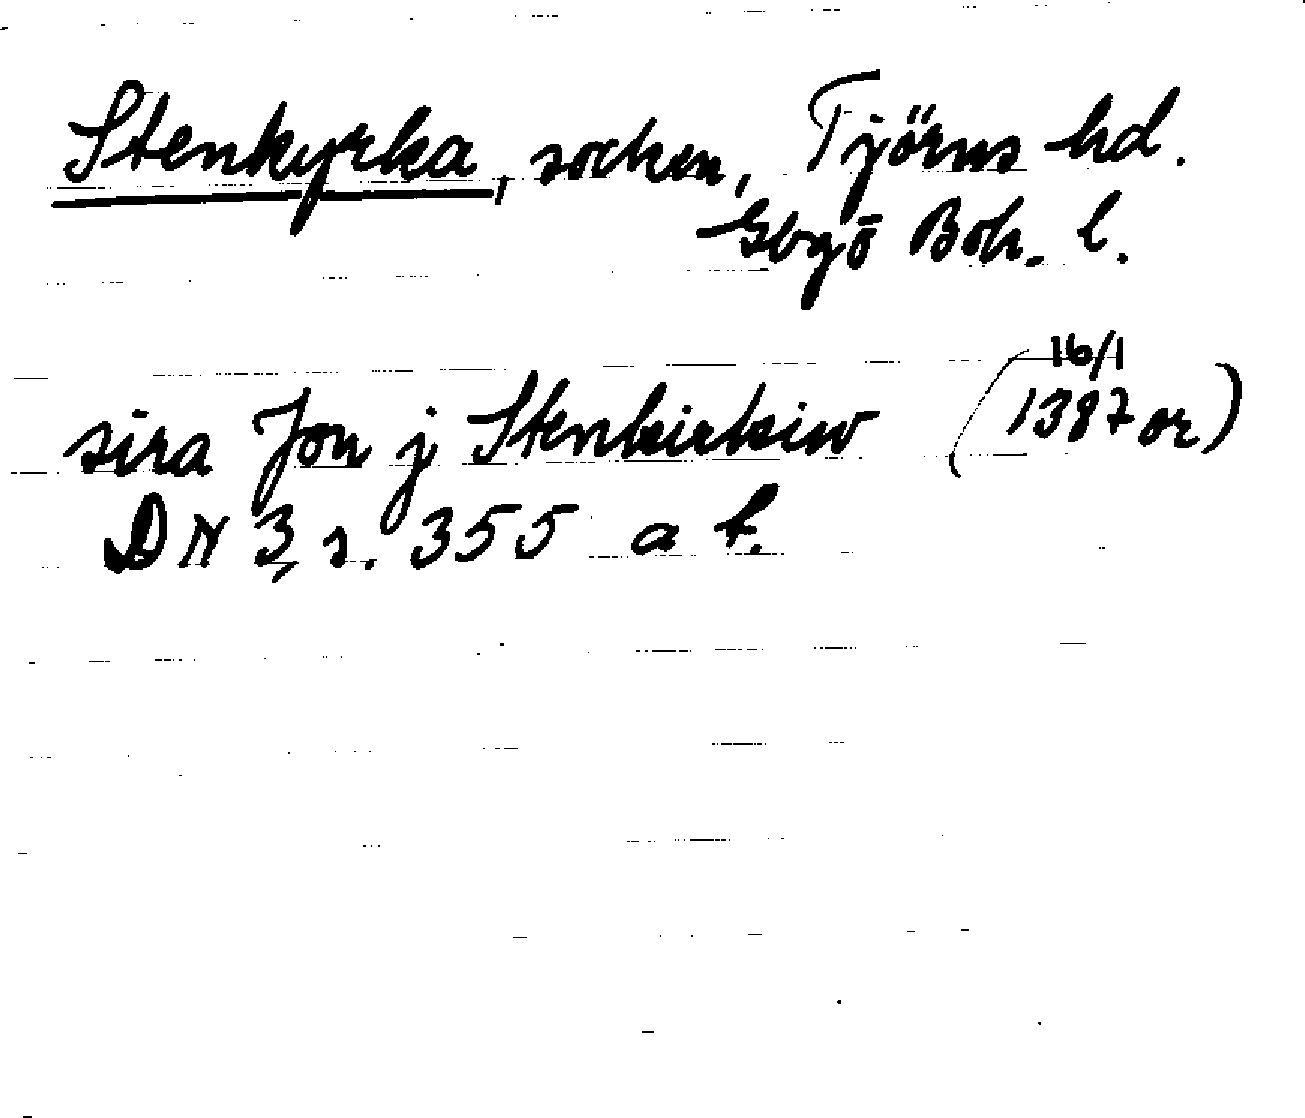 Stenkyrka, socken, Tjörns hd.
Gbgo Boh. l.
16/1
sira Jon j Stenkirkiw (1387 or)
DN 3, s. 355 a t.